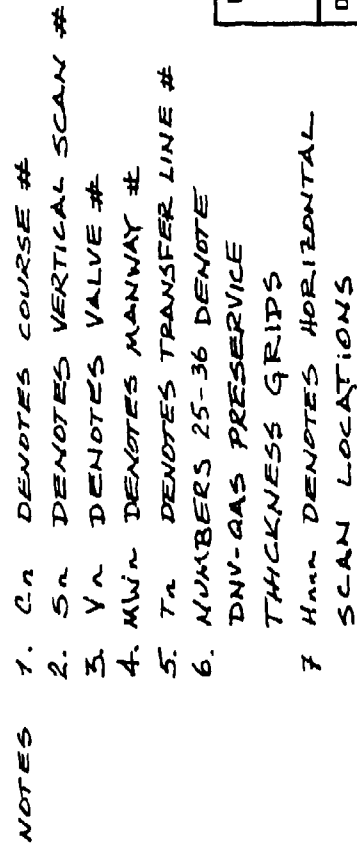 NOTES 1. Cn DENOTES COURSE #
2. Sn DENOTES VERTICAL SCAN #
3. Vn DENOTES VALVE #
4. MWn DENOTES MANWAY #
5. Tn DENOTES TRANSFER LINE #
6. NUMBERS 25-36 DENOTE
DNV-QAS PRESERVICE
THICKNESS GRIDS
7 Hnnn DENOTES HORIZONTAL
SCAN LOCATIONS